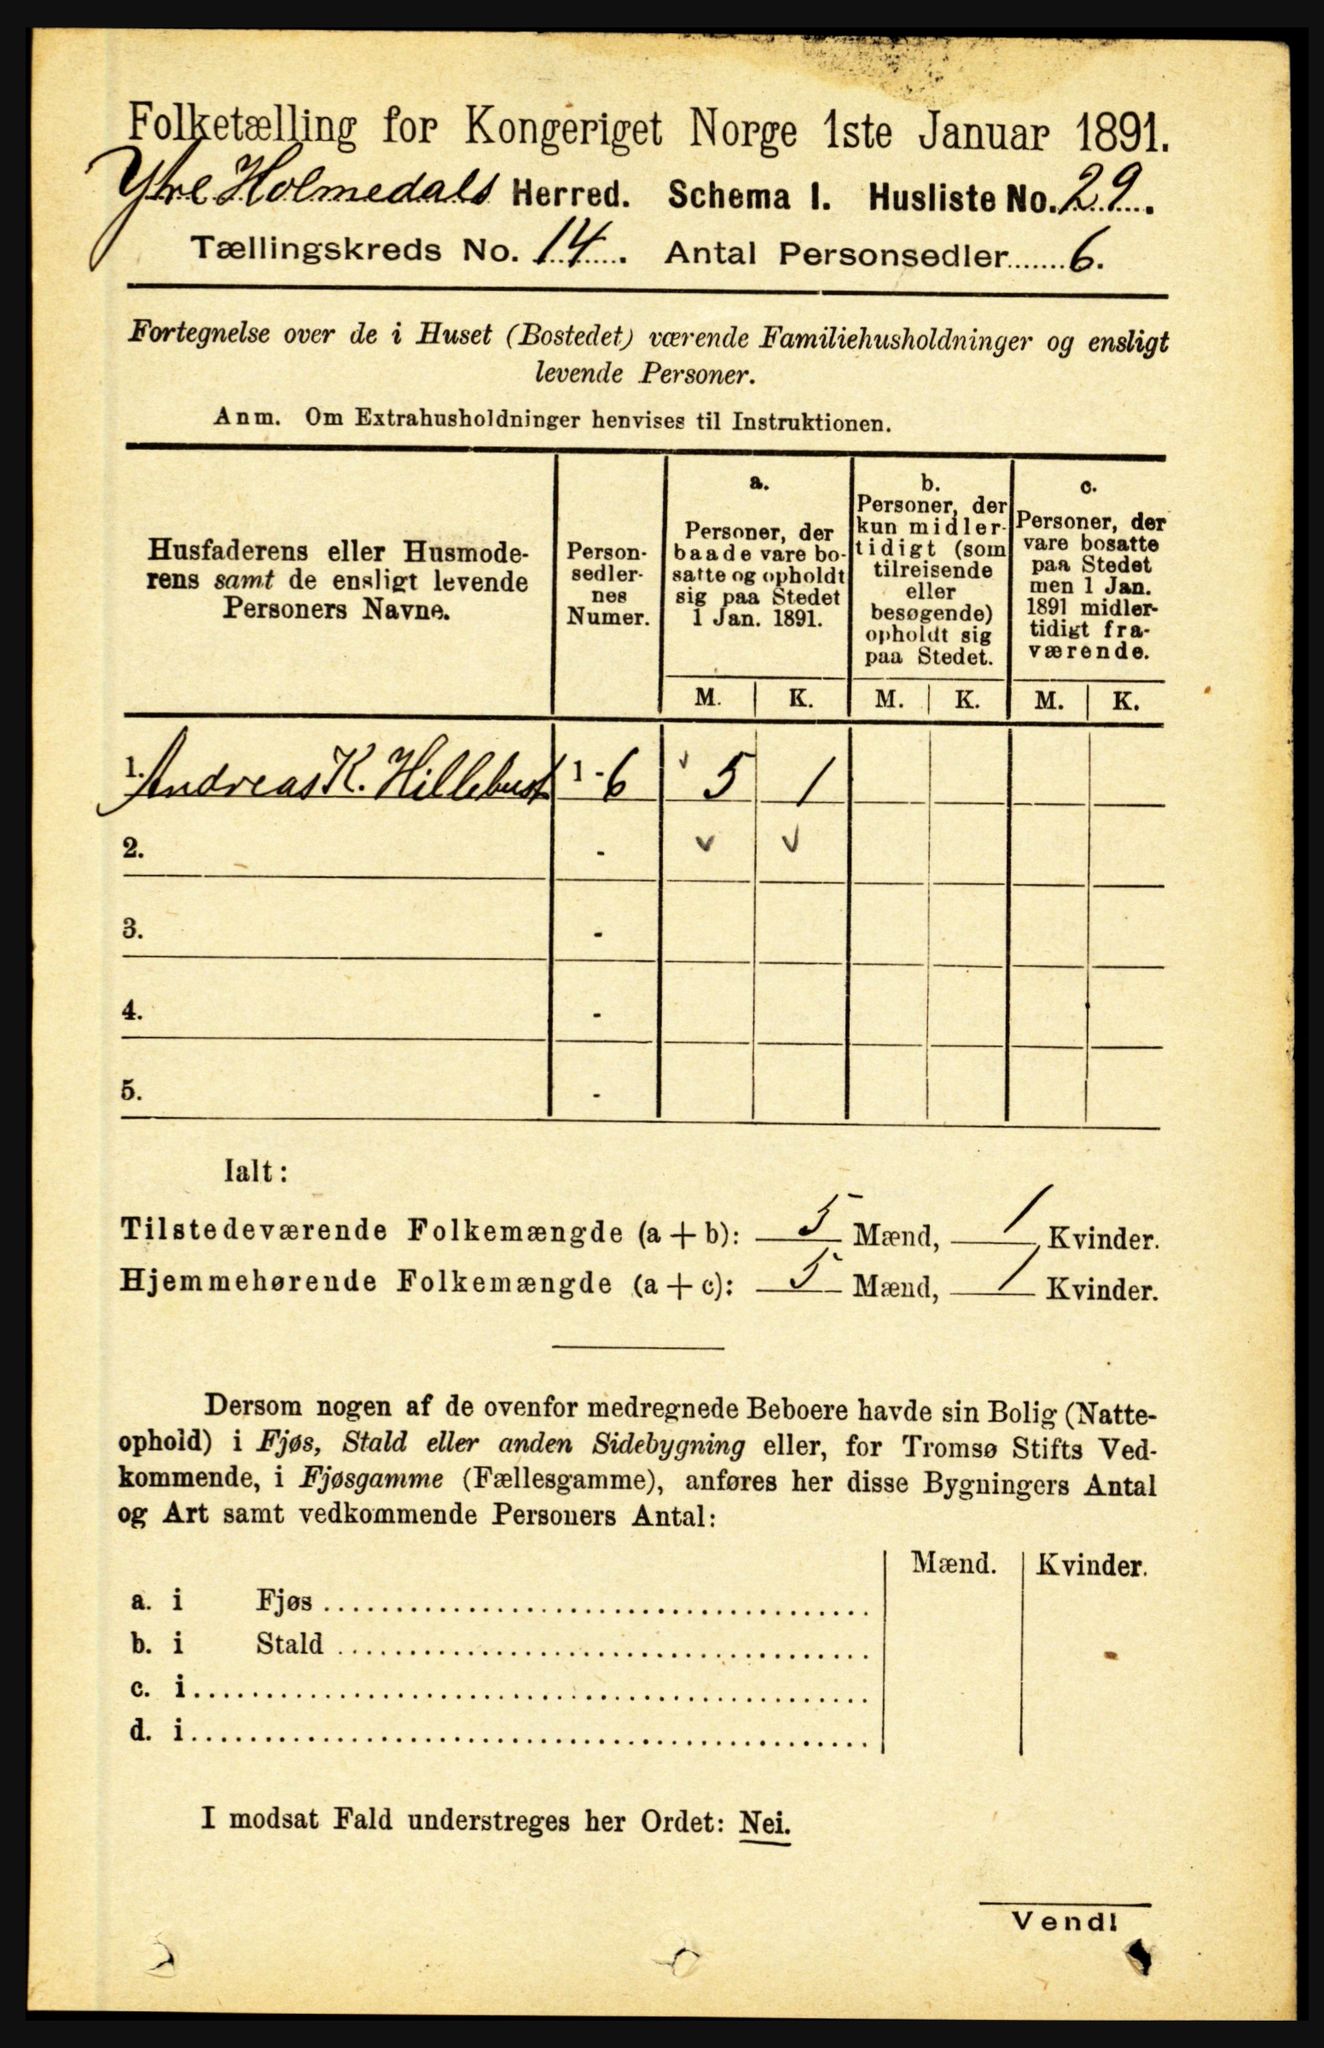 Folketælling for Kongeriget Norge 1ste Januar 1891.
Ytre Holmedals Herred. Schema I. Husliste No. 29.
Tællingskreds No. 14. Antal Personsedler 6.
Fortegnelse over de i Huset (Bostedet) værende Familiehusholdninger og ensligt
levende Personer.
Anm. Om Extrahusholdninger henvises til Instruktionen.
Husfaderens eller Husmode-
rens samt de ensligt levende
Personers Navne.
Person-
sedler-
nes
Numer.
a.
Personer, der
baade vare bo-
satte og opholdt
sig paa Stedet
1 Jan. 1891.
b.
Personer, der
kun midler-
tidigt (som
tilreisende
eller
besøgende)
opholdt sig
paa Stedet.
c.
Personer, der
vare bosatte
paa Stedet
men 1 Jan.
1891 midler-
tidigt fra-
værende.
M. K. M. K. M. K.
1. Andreas K. Hillebust 1 - 6 5 1
2. -
3. -
4. -
5. -
Ialt:
Tilstedeværende Folkemængde (a + b): 5 Mænd, 1 Kvinder.
Hjemmehørende Folkemængde (a + c): 5 Mænd, 1 Kvinder.
Dersom nogen af de ovenfor medregnede Beboere havde sin Bolig (Natte-
ophold) i Fjøs, Stald eller anden Sidebygning eller, for Tromsø Stifts Ved-
kommende, i Fjøsgamme (Fællesgamme), anføres her disse Bygningers Antal
og Art samt vedkommende Personers Antal:
Mænd. Kvinder.
a. i Fjøs
b. i Stald
c. i
d. i
I modsat Fald understreges her Ordet: Nei.
Vend!